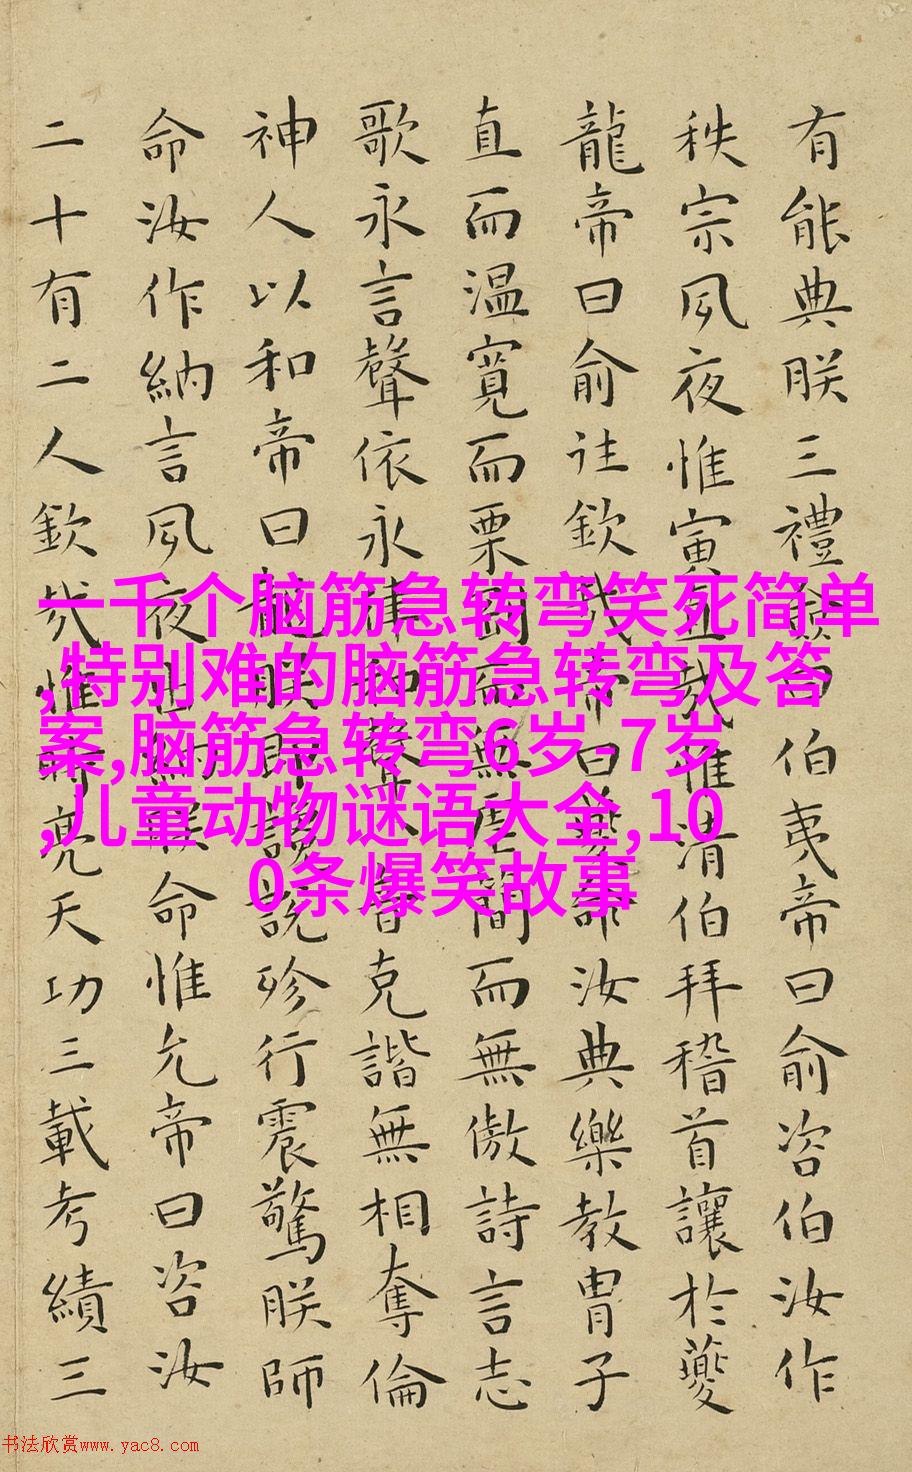 有能典朕三禮僉曰伯夷帝曰俞咨伯汝作
秩宗夙夜惟寅直哉惟清伯拜稽首讓於夔
龍帝曰俞往欽哉帝曰夔命汝典樂教胄子
直而温寬而栗剛而無虐簡而無傲詩言志
歌永言聲依永律和聲八音克諧無相奪倫
神人以和帝曰龍朕堲讒說殄行震驚朕師
命汝作納言夙夜出納朕命惟允帝曰咨汝
二十有二人欽哉惟時亮天功三載考績三
一千个脑筋急转弯笑死简单
,特别难的脑筋急转弯及答
案,脑筋急转弯6岁-7岁
,儿童动物谜语大全,10
0条爆笑故事
书法欣赏www.yac8.com